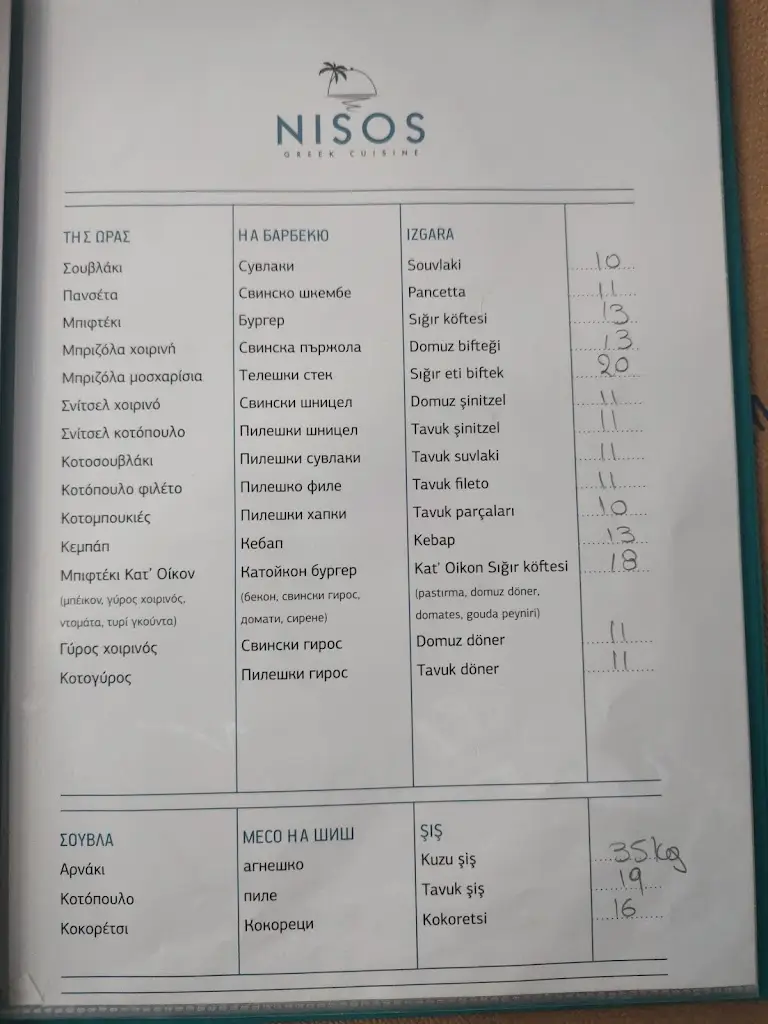 NISOS
GREEK CUISINE
ΤΗΣ ΩΡΑΣ НА БАРБЕКЮ IZGARA
Σουβλάκι Сувлаки Souvlaki 10
Πανσέτα Свинско шкембе Pancetta 11
Μπιφτέκι Бургер Sığır köftesi 13
Μπριζόλα χοιρινή Свинска пържола Domuz bifteği 13
Μπριζόλα μοσχαρίσια Телешки стек Sığır eti biftek 20
Σνίτσελ χοιρινό Свински шницел Domuz şinitzel 11
Σνίτσελ κοτόπουλο Пилешки шницел Tavuk şinitzel 11
Κοτοσουβλάκι Пилешки сувлаки Tavuk suvlaki 11
Κοτόπουλο φιλέτο Пилешко филе Tavuk fileto 11
Κοτομπουκιές Пилешки хапки Tavuk parçaları 10
Κεμπάπ Кебап Kebap 13
Μπιφτέκι Κατ' Οίκον Катойкон бургер Kat' Oikon Sığır köftesi 18
(μπέικον, γύρος χοιρινός, (бекон, свински гирос, (pastırma, domuz döner,
ντομάτα, τυρί γκούντα) домати, сирене) domates, gouda peyniri)
Γύρος χοιρινός Свински гирос Domuz döner 11
Κοτογύρος Пилешки гирос Tavuk döner 11
ΣΟΥΒΛΑ МЕСО НА ШИШ ŞIŞ
Αρνάκι агнешко Kuzu şiş 35kg
Κοτόπουλο пиле Tavuk şiş 19
Κοκορέτσι Кокореци Kokoretsi 16